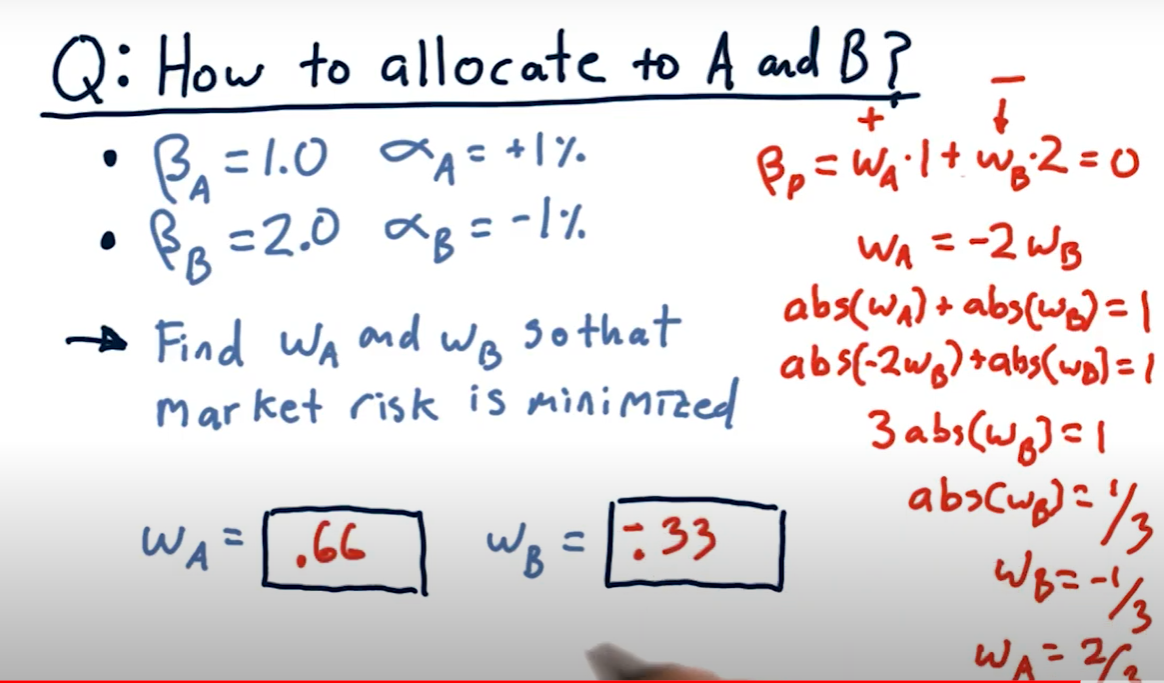 Q: How to allocate to A and B?
• βA = 1.0 αA = +1%
• βB = 2.0 αB = -1%
→ Find wA and wB so that
market risk is minimized
wA = .66 wB = -.33
−
+ ↓
βp = wA·1 + wB·2 = 0
wA = -2wB
abs(wA) + abs(wB) = 1
abs(-2wB) + abs(wB) = 1
3 abs(wB) = 1
abs(wB) = 1/3
wB = -1/3
wA = 2/3